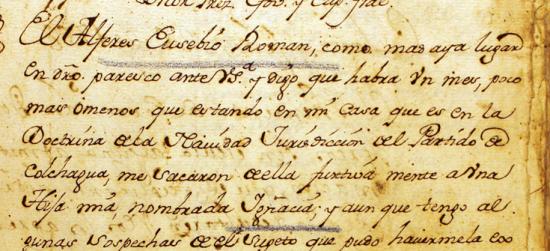 El Alferes Eusebio Roman, como mas aya lugar
en dro. paresco ante VSa. y digo que habra vn mes, poco
mas ó menos que estando en mi Casa que es en la
Doctrina de la Navidad Jurisdiccion del Partido de
Colchagua, me sacaron de ella furtiva mente a vna
Hija mia, nombrada Ignacia; y aun que tengo al
gunas sospechas de el Sugeto que pudo havermela